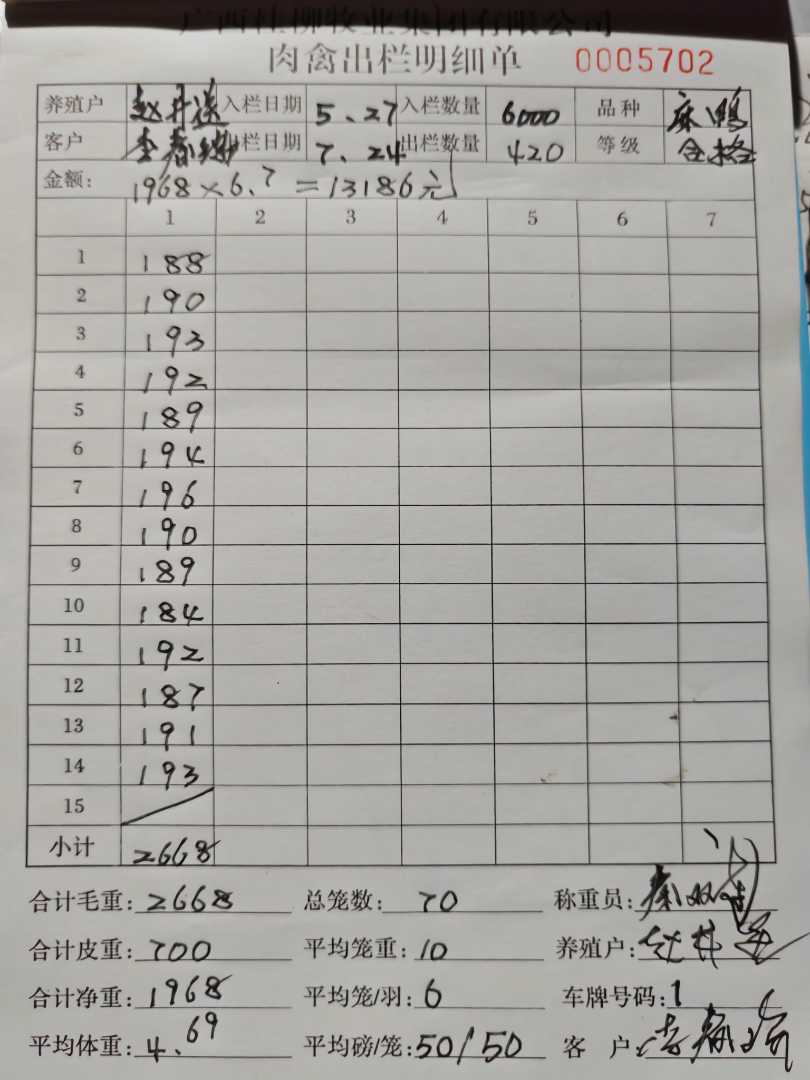 广西桂柳牧业集团有限公司
肉禽出栏明细单 0005702
养殖户 赵井送 入栏日期 5.27 入栏数量 6000 品种 麻鸭
客户 李春 出栏日期 7.24 出栏数量 420 等级 合格
金额: 1968×6.7=13186元
1 2 3 4 5 6 7
1 188
2 190
3 193
4 192
5 189
6 194
7 196
8 190
9 189
10 184
11 192
12 187
13 191
14 193
15
小计 2668
合计毛重: 2668 总笼数: 70 称重员:
合计皮重: 700 平均笼重: 10 养殖户:
合计净重: 1968 平均笼/羽: 6 车牌号码: 1
平均体重: 4.69 平均磅/笼: 50/50 客 户: